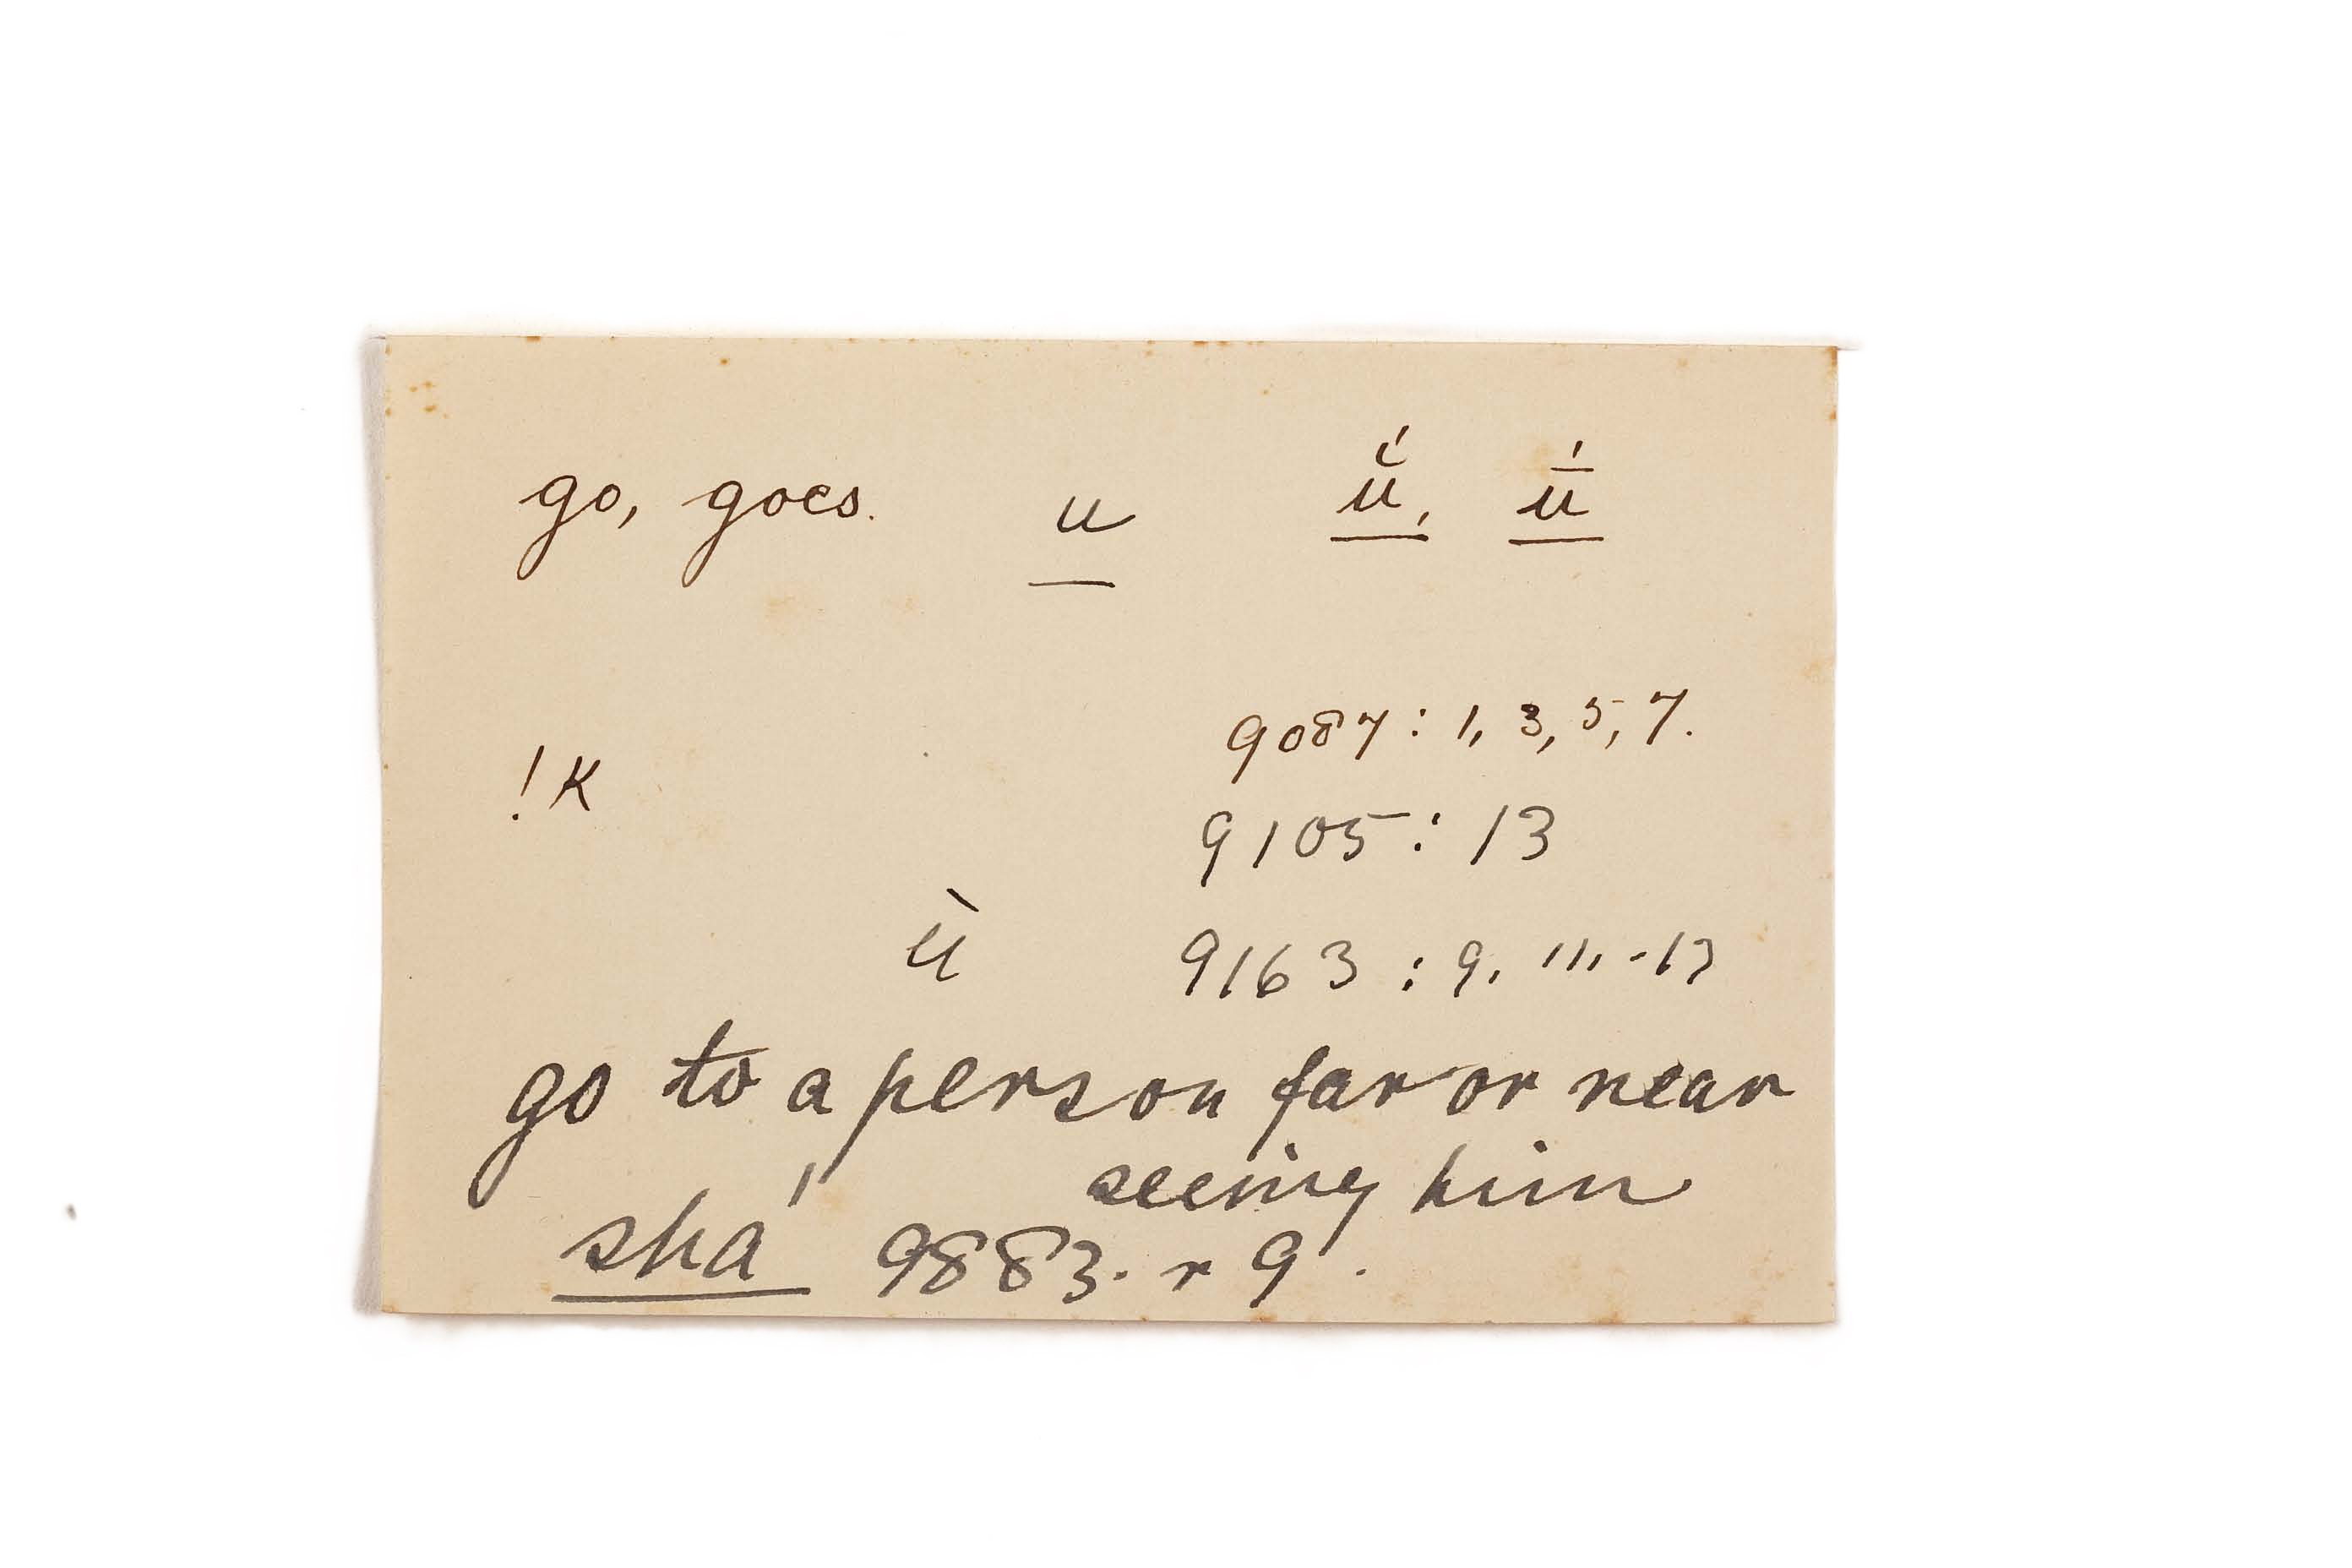 go, goes. u ŭ́, ū́
9087 : 1, 3, 5, 7.
! K
9105 : 13
ù 9163 : 9, 11, -13
go to a person far or near
seeing him
shá 9883. r 9.